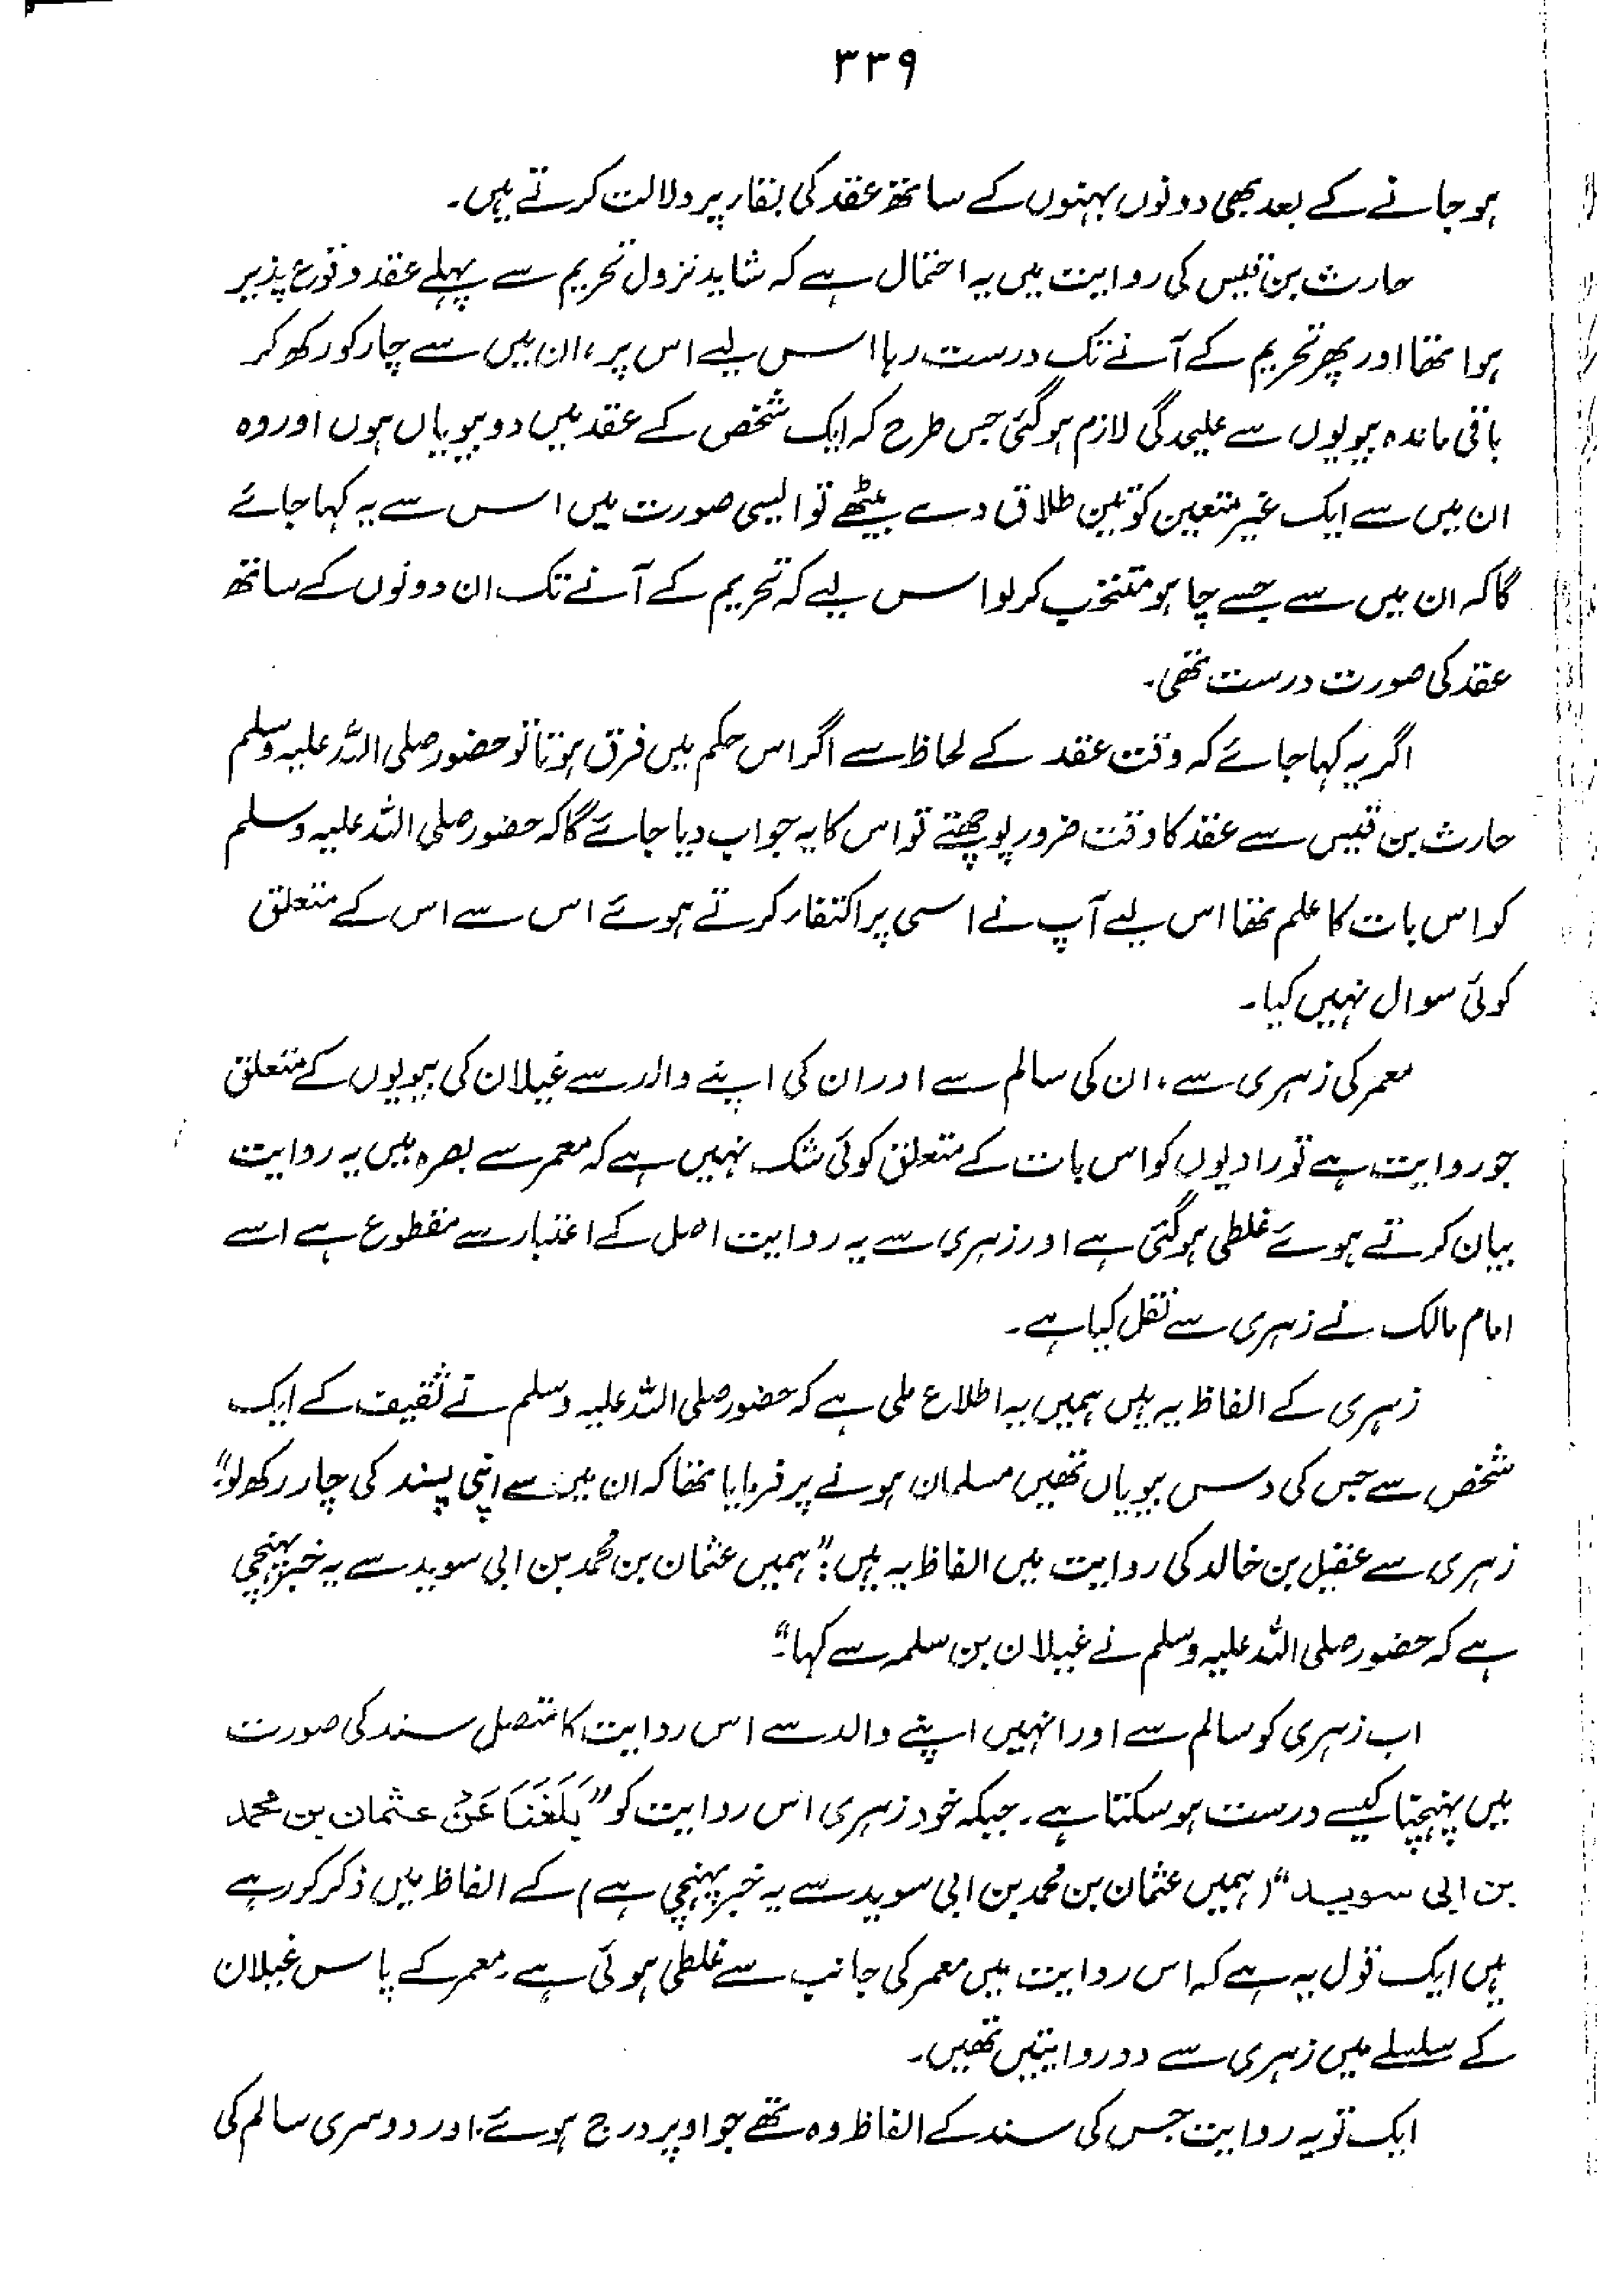 ۳۳۹
ہو جانے کے بعد بھی دونوں بہنوں کے ساتھ عقد کی بقاء پر دلالت کرتے ہیں۔
حارث بن قیس کی روایت میں یہ احتمال ہے کہ شاید نزول تحریم سے پہلے عقد وقوع پذیر
ہوا تھا اور پھر تحریم کے آنے تک درست رہا اس لیے اس پر، ان میں سے چار کو رکھ کر
باقی ماندہ بیویوں سے علیحدگی لازم ہوگئی جس طرح کہ ایک شخص کے عقد میں دو بیویاں ہوں اور وہ
ان میں سے ایک غیر متعین کو تین طلاق دے بیٹھے تو ایسی صورت میں اس سے یہ کہا جائے
گا کہ ان میں سے جسے چاہو منتخب کر لو اس لیے کہ تحریم کے آنے تک ان دونوں کے ساتھ
عقد کی صورت درست تھی۔
اگر یہ کہا جائے کہ وقت عقد کے لحاظ سے اگر اس حکم میں فرق ہوتا تو حضور صلی اللہ علیہ وسلم
حارث بن قیس سے عقد کا وقت ضرور پوچھتے تو اس کا یہ جواب دیا جائے گا کہ حضور صلی اللہ علیہ وسلم
کو اس بات کا علم تھا اس لیے آپ نے اسی پر اکتفاء کرتے ہوئے اس سے اس کے متعلق
کوئی سوال نہیں کیا۔
معمر کی زہری سے، ان کی سالم سے اور ان کی اپنے والد سے غیلان کی بیویوں کے متعلق
جو روایت ہے تو راویوں کو اس بات کے متعلق کوئی شک نہیں ہے کہ معمر سے بصرہ میں یہ روایت
بیان کرتے ہوئے غلطی ہوگئی ہے اور زہری سے یہ روایت اصل کے اعتبار سے مقطوع ہے اسے
امام مالک نے زہری سے نقل کیا ہے۔
زہری کے الفاظ یہ ہیں ہمیں یہ اطلاع ملی ہے کہ حضور صلی اللہ علیہ وسلم نے ثقیف کے ایک
شخص سے جس کی دس بیویاں تھیں مسلمان ہونے پر فرمایا تھا کہ ان میں سے اپنی پسند کی چار رکھ لو"
زہری سے عقیل بن خالد کی روایت میں الفاظ یہ ہیں: "ہمیں عثمان بن محمد بن ابی سوید سے یہ خبر پہنچی
ہے کہ حضور صلی اللہ علیہ وسلم نے غیلان بن سلمہ سے کہا"۔
اب زہری کو سالم سے اور انہیں اپنے والد سے اس روایت کا متصل سند کی صورت
میں پہنچنا کیسے درست ہو سکتا ہے۔ جبکہ خود زہری اس روایت کو "بَلَغَنَا عَنْ عثمان بن محمد
بن ابی سوید" (ہمیں عثمان بن محمد بن ابی سوید سے یہ خبر پہنچی ہے) کے الفاظ میں ذکر کو رہے
ہیں ایک قول یہ ہے کہ اس روایت میں معمر کی جانب سے غلطی ہوئی ہے۔ معمر کے پاس غیلان
کے سلسلے میں زہری سے دو روایتیں تھیں۔
ایک تو یہ روایت جس کی سند کے الفاظ وہ تھے جو اوپر درج ہوئے، اور دوسری سالم کی